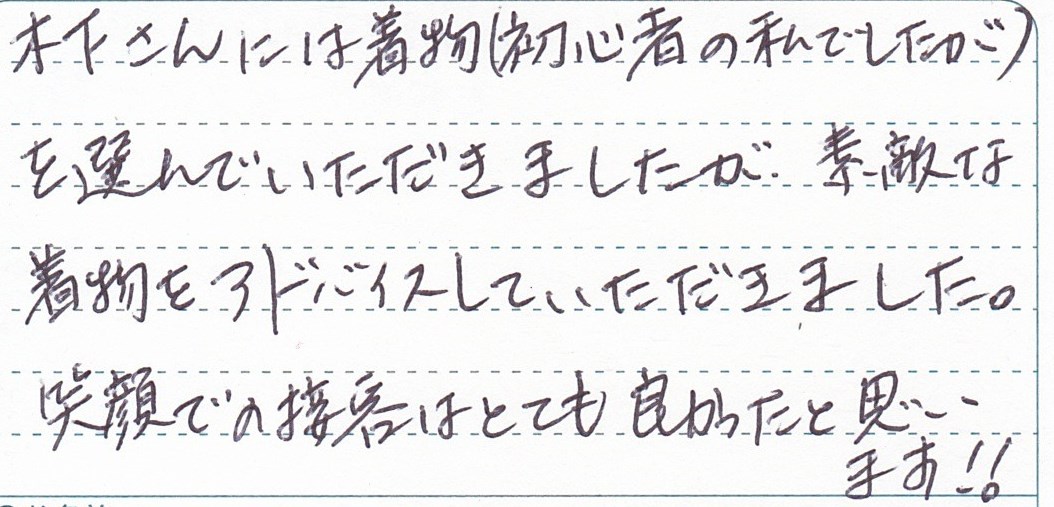 木下さんには着物(初心者の私でしたが)
を選んでいただきましたが、素敵な
着物をアドバイスしていただきました。
笑顔での接客はとても良かったと思い
ます!!